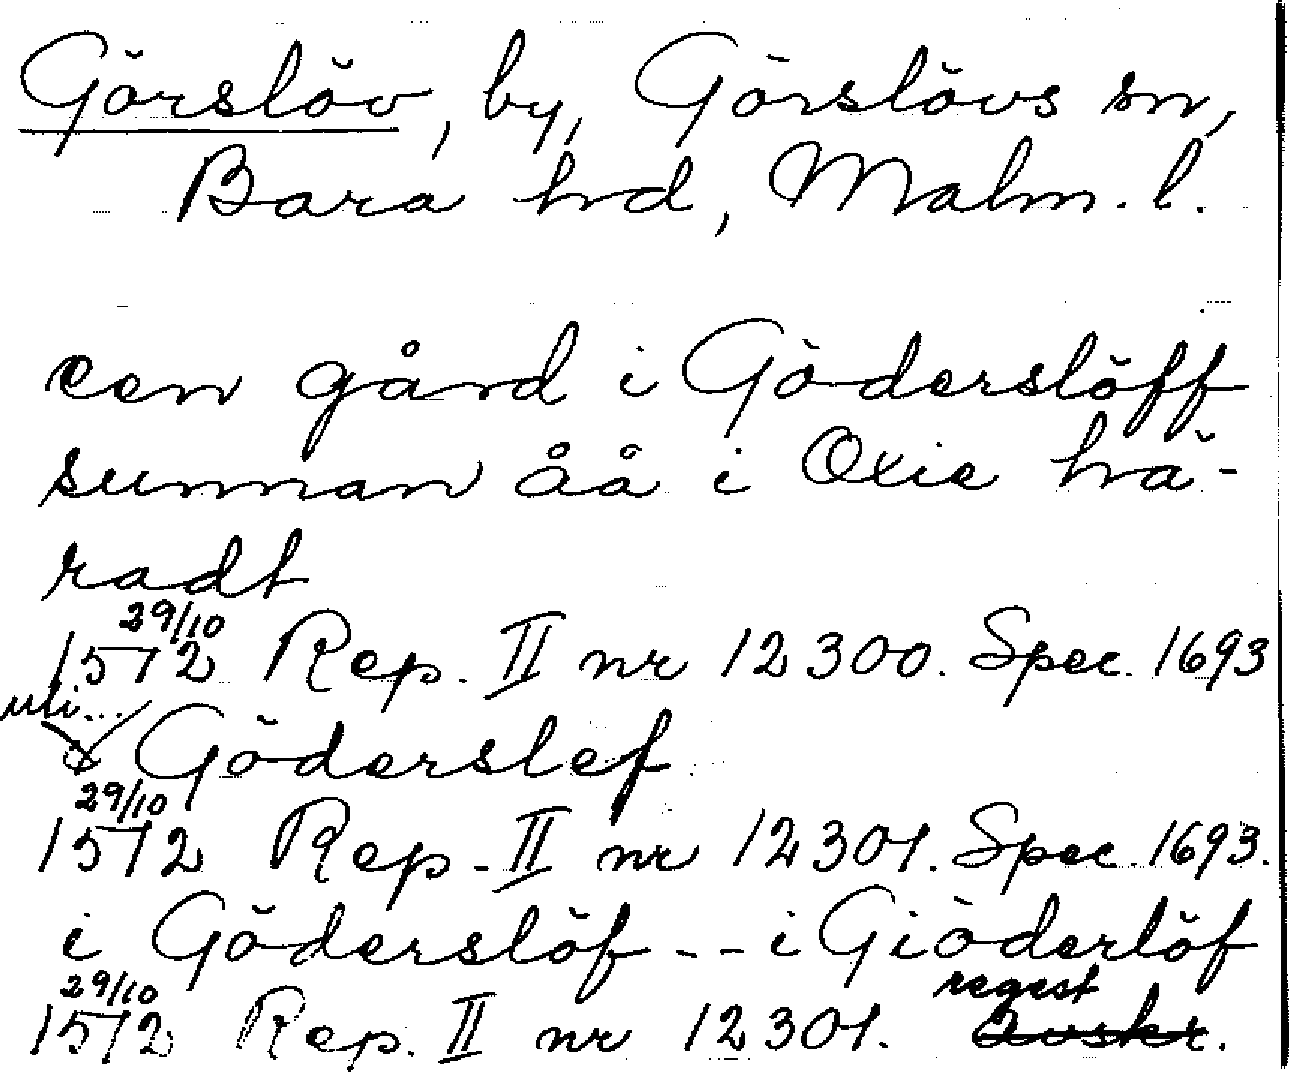 Görslöv, by, Görslövs sn,
Bara hd, Malm. l.
een gård i Göderslöff
sunnan åå i Oxie hä-
radt
29/10
1572 Rep. II nr 12300. Spec. 1693
Göderslef
29/10
1572 Rep. II nr 12301. Spec. 1693.
i Göderslöf - - i Giöderlöf
29/10 regest
1572 Rep. II nr 12301. Avskr.